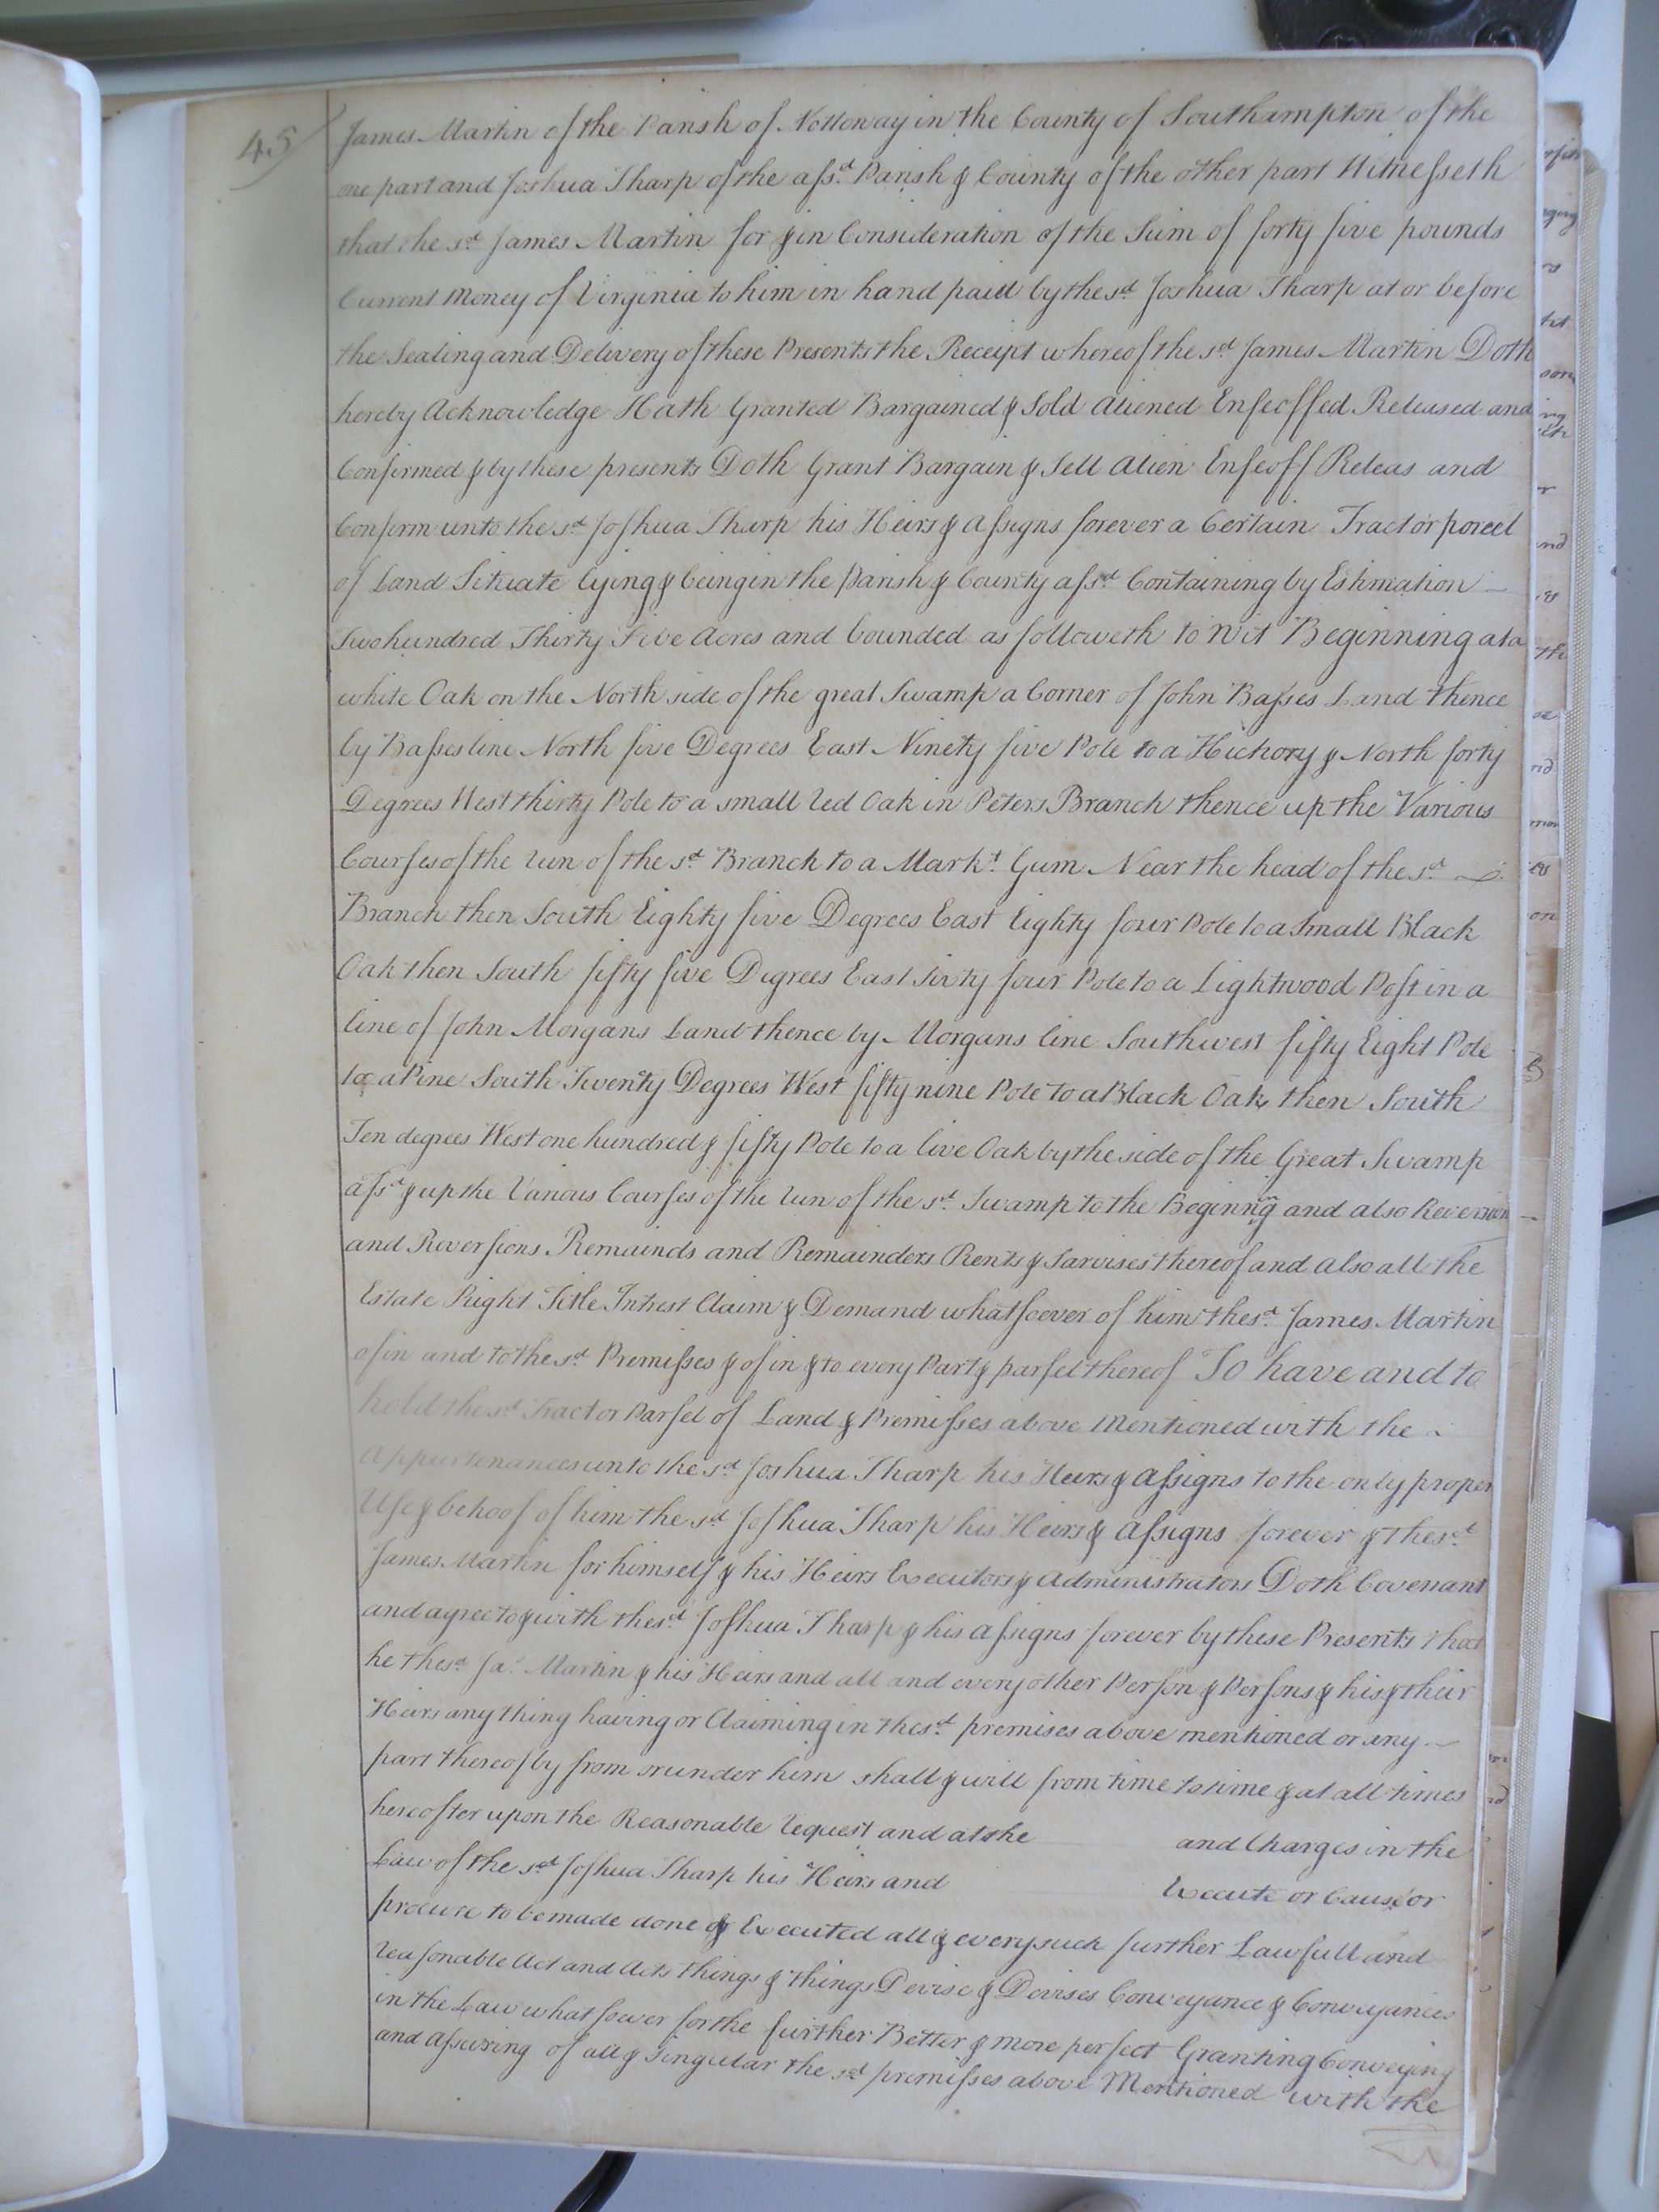 45
James Martin of the Parish of Nottoway in the County of Southampton of the
one part and Joshua Tharp of the afsd. Parish & County of the other part Witnesseth
that the sd. James Martin for & in Consideration of the Sum of forty five pounds
Current Money of Virginia to him in hand paid by the sd. Joshua Tharp at or before
the Sealing and Delivery of these Presents the Receipt whereof the sd. James Martin Doth
hereby Acknowledge Hath Granted Bargained & Sold Aliened Enfeoffed Released and
Confirmed & by these presents Doth Grant Bargain & Sell Alien Enfeoff Releas and
Confirm unto the sd. Joshua Tharp his Heirs & Assigns forever a Certain Tract or porcel
of Land Situate lying & being in the Parish & County afsd. Containing by Estimation
Two hundred Thirty Five Acres and bounded as followeth to Wit Beginning at a
white Oak on the North side of the great Swamp a Corner of John Basses Land thence
by Basses line North five Degrees East Ninety five Pole to a Hickory & North forty
Degrees West thirty Pole to a small red Oak in Peters Branch thence up the Various
Courses of the run of the sd. Branch to a Markt. Gum Near the head of the sd.
Branch then South Eighty five Degrees East Eighty four Pole to a Small Black
Oak then South fifty five Degrees East sixty four Pole to a Lightwood Post in a
line of John Morgans Land thence by Morgans line Southwest fifty Eight Pole
to a Pine South Twenty Degrees West fifty nine Pole to a Black Oak then South
Ten degrees West one hundred & fifty Pole to a live Oak by the side of the Great Swamp
afsd. & up the Various Courses of the run of the sd. Swamp to the Beginning and also Reversion
and Reversions Remainds and Remainders Rents & Sarvises thereof and also all the
Estate Right Title Intrest Claim & Demand whatsoever of him the sd. James Martin
of in and to the sd. Premisses & of in & to every Part & parsel thereof To have and to
hold the sd. Tract or Parsel of Land & Premisses above Mentioned with the
Appurtenances unto the sd. Joshua Tharp his Heirs & Assigns to the only proper
Use & behoof of him the sd. Joshua Tharp his Heirs & Assigns forever & the sd.
James Martin for himself & his Heirs Executors & Administrators Doth Covenant
and agree to & with the sd. Joshua Tharp & his assigns forever by these Presents that
he the sd. Ja. Martin & his Heirs and all and every other Person & Persons & his & their
Heirs any thing having or Claiming in the sd. premises above mentioned or any
part thereof by from or under him shall & will from time to time & at all times
hereafter upon the Reasonable request and at the and Charges in the
Law of the sd. Joshua Tharp his Heirs and Execute or Cause or
procure to be made done & Executed all & every such further Lawfull and
reasonable Act and Acts things & things Devise & Devises Conveyance & Conveyances
in the Law whatsoever for the further Better & more perfect Granting Conveying
and Assuring of all & Singular the sd. premisses above Mentioned with the